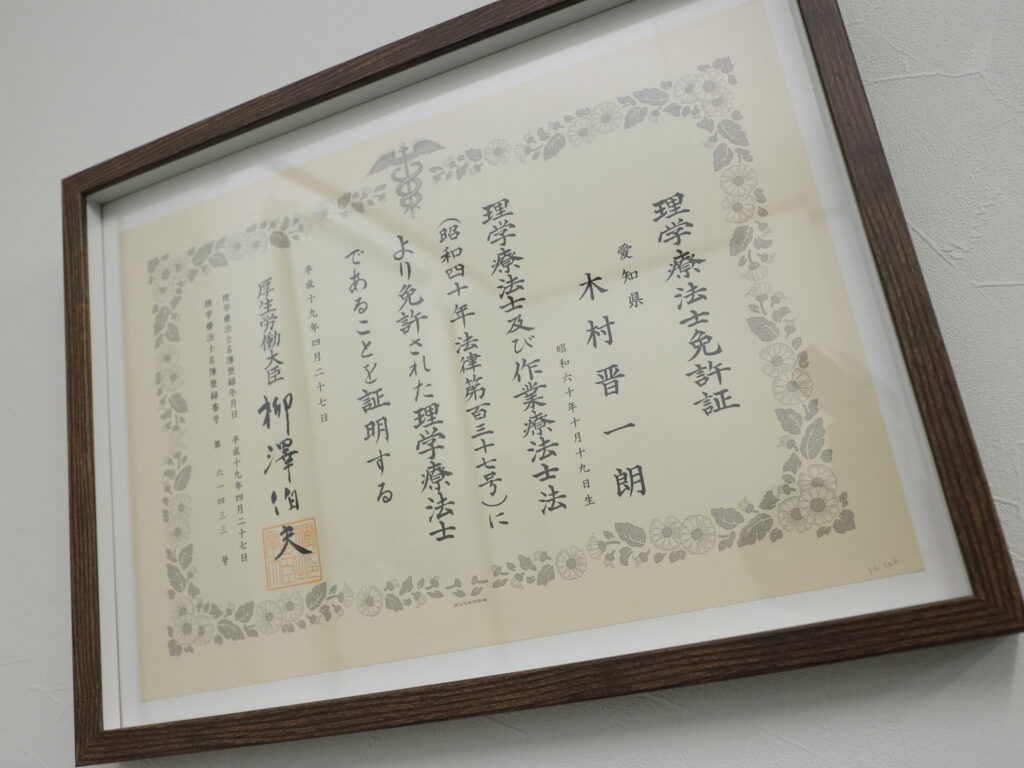 理学療法士免許証
愛知県
木村晋一朗
昭和六十年十月十九日生
理学療法士及び作業療法士法
（昭和四十年法律第百三十七号）に
より免許された理学療法士
であることを証明する
平成十九年四月二十七日
厚生労働大臣 柳澤伯夫
理学療法士名簿登録年月日 平成十九年四月二十七日
理学療法士名簿登録番号 第 六一四三三 号